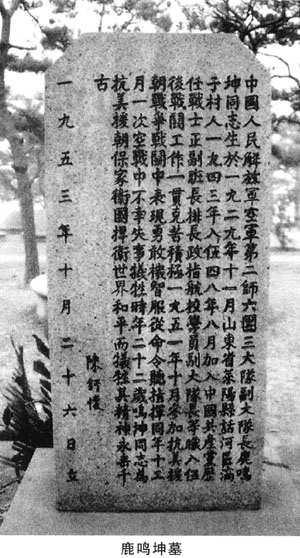 中國人民解放軍空軍第二師六團三大隊副大隊長鹿鳴
坤同志生於一九二九年十一月山東省萊陽縣話河區滿
子村人一九四三年入伍四八年八月加入中國共產黨歷
任戰士正副班長排長政指航校學員副大隊長等職入伍
後戰鬪工作一貫克苦積極一九五一年十月參加抗美援
朝戰爭戰鬪中表現勇敢機智服從命令聽指揮同年十二
月一次空戰中不幸失事犧牲時年二十二歲鳴坤同志為
抗美援朝保家衞國捍衞世界和平而犧牲其精神永垂千
古
陳
一九五三年十月二十六日立
鹿鸣坤墓